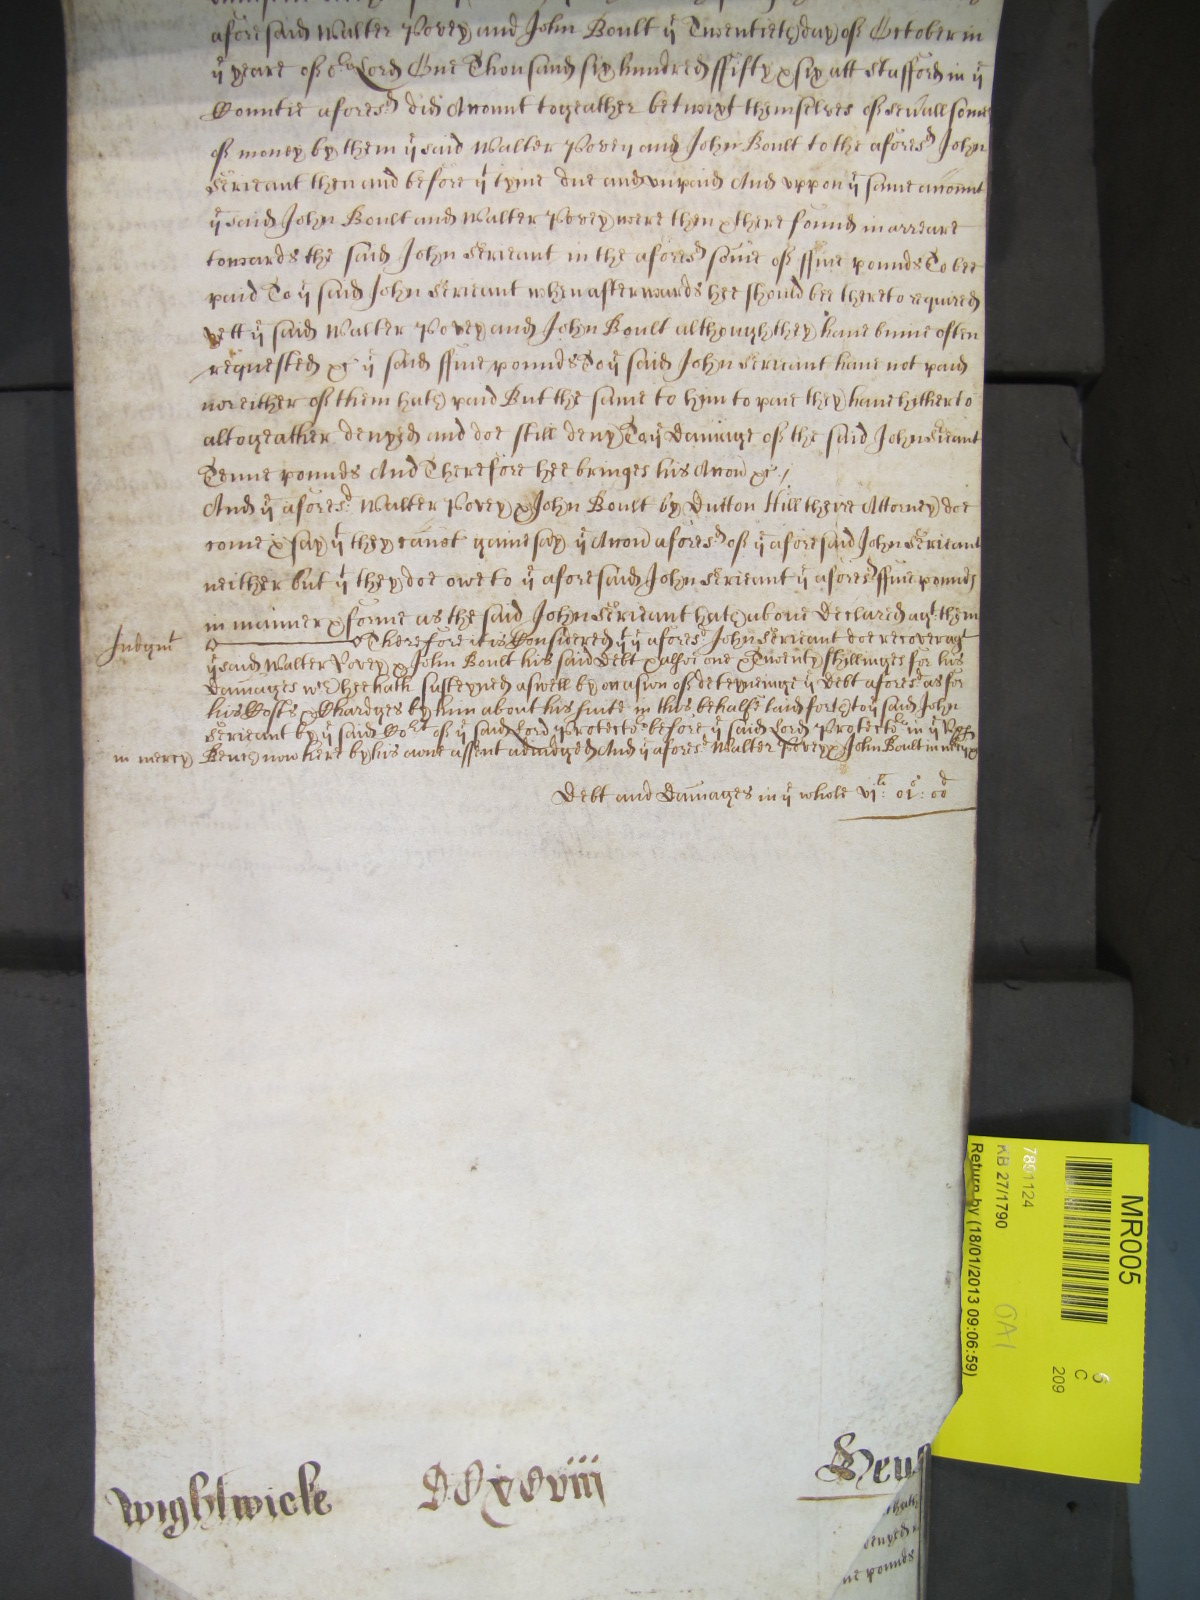 aforesaid Walter Povey and John Boult ye Twentieth day of October in
ye yeare of or Lord One Thousand six hundred ffifty & six att Stafford in ye
Countie aforesd did Accompt togeather betwixt themselves of sevall somes
of money by them ye said Walter Povey and John Boult to the aforesd John
Serieant then and before yt tyme due and unpaid And uppon ye same accompt
ye said John Boult and Walter Povey were then & there found in arreare
towards the said John Serieant in the aforesd some of ffive pounds To bee
paid To ye said John Serieant when afterwards hee should bee thereto required
yett ye said Walter Povey and John Boult although they have binne often
requested &c ye said ffive pounds To ye said John Serieant have not paid
nor either of them hath paid But the same to him to paie they have hitherto
altogeather denyed and doe still deny To ye Damage of the said John Srieant
Tenne pounds And Therefore hee bringes his Accon &c /
And ye aforesd Walter Povey & John Boult by Dutton Hill theire Attorney doe
come & say yt they canot gainesay ye Accon aforesd of ye aforesaid John Serieant
neither but yt they doe owe to ye aforesaid John Serieant ye aforesd ffive pounds
in manner & forme as the said John Serieant hath above Declared agt them
Judgmt Therefore it is Considered yt ye aforesd John Serieant doe recover agt
ye said Walter Povey & John Boult his said Debt & alsoe one & Twenty shillinges for his
Damages wch hee hath susteyned aswell by occasion of deteyneinge ye Debt aforesd as for
his Costs & Chardges by him about his suite in this behalfe laid forth to ye said John
Serieant by ye said Cort of ye said Lord Protector before ye said Lord Protector in ye Upper
in mercy Bench now here by his owne assent adiudged And ye aforesd Walter Povey & John Boult in mercy &c
Debt and Damages in ye whole vjli : 01s : 00d
Wightwicke
CCxxviii
hath
denyed
ne pounds
MR005
6
C
209
7891124
KB 27/1790
Return by (18/01/2013 09:06:59)